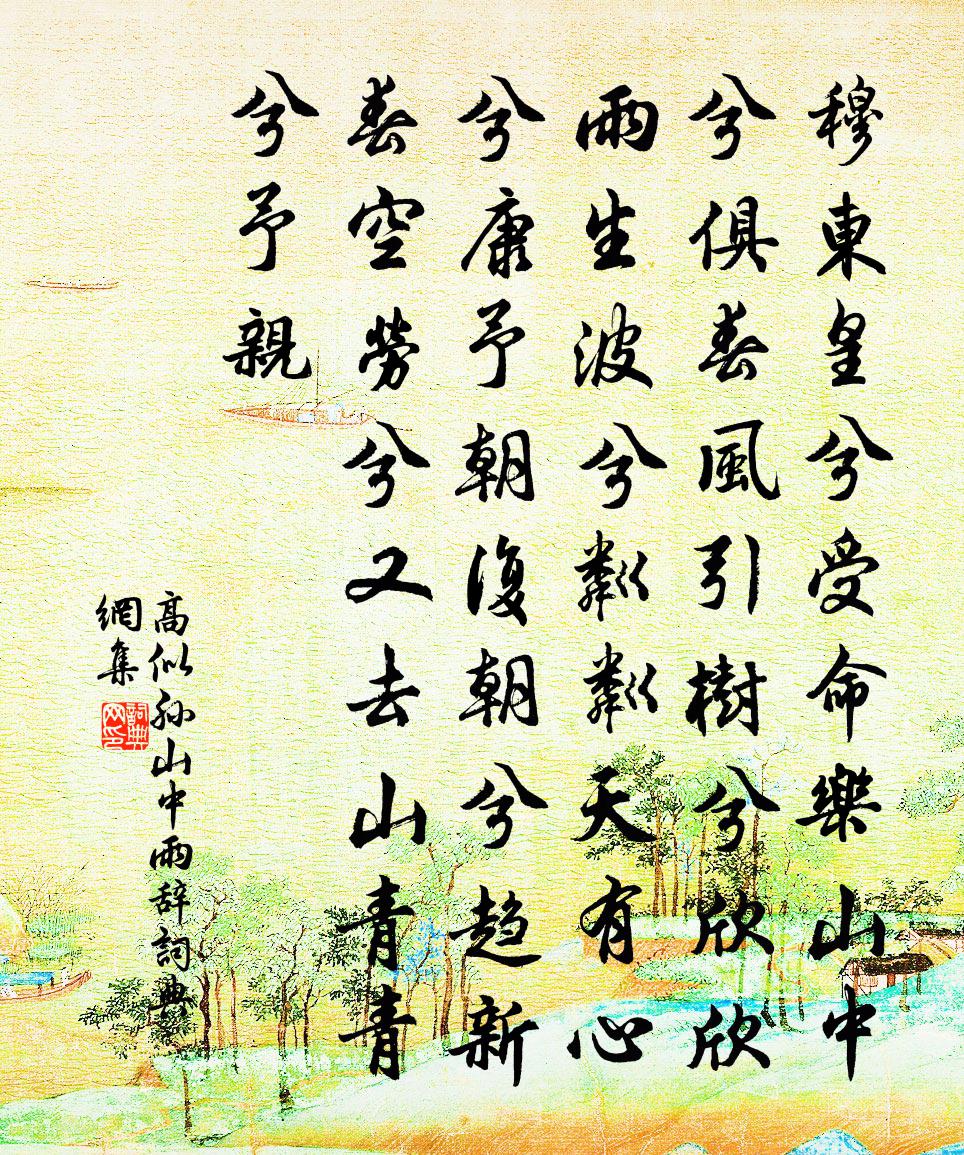 穆東皇兮受命樂山中
兮俱春風引樹兮欣欣
雨生波兮粼粼天有心
兮康予朝復朝兮趋新
春空勞兮又去山青青
兮予親
高似孙山中雨辞詞典
網集
詞典网印